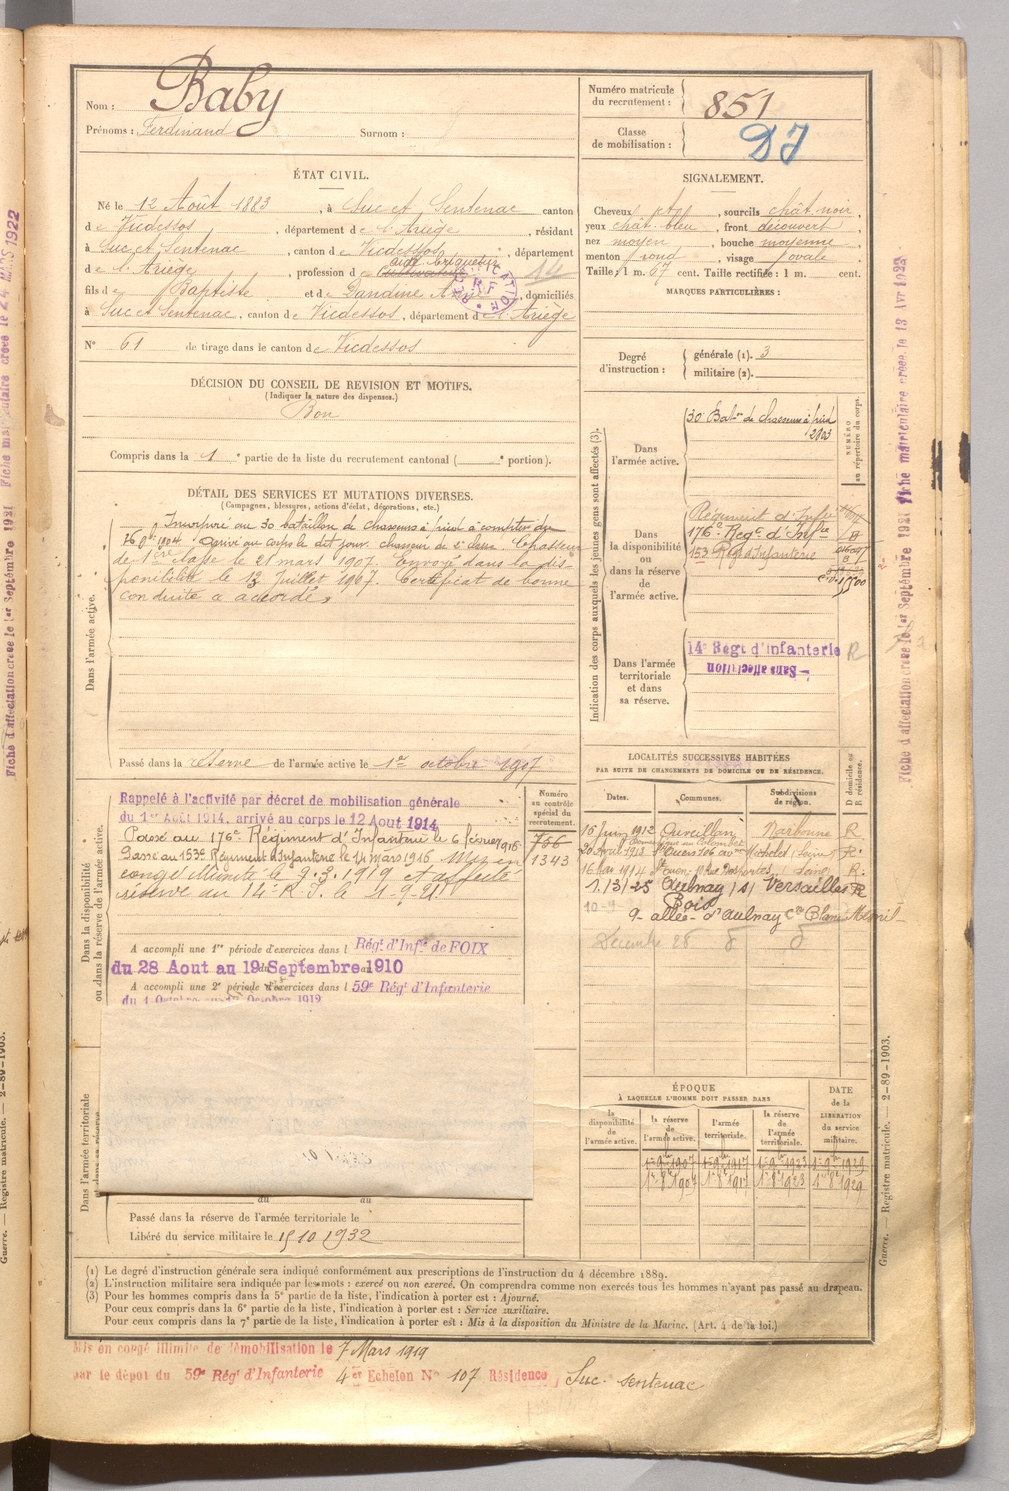 Nom : Baby
Prénoms : Ferdinand Surnom :
Numéro matricule du recrutement : 851
Classe de mobilisation :
ÉTAT CIVIL.
Né le 12 Août 1883, à Suc et Sentenac canton
de Vicdessos, département de l'Ariège, résidant
à Suc et Sentenac, canton de Vicdessos, département
de l'Ariège, profession de Cultivateur
14
fils de Baptiste et de Dandine, domiciliés
à Suc et Sentenac, canton de Vicdessos, département de l'Ariège
N° 61 de tirage dans le canton de Vicdessos
SIGNALEMENT.
Cheveux, sourcils chât noir,
yeux chât bleu, front découvert,
nez moyen, bouche moyenne,
menton rond, visage ovale.
Taille : 1 m. 67 cent. Taille rectifiée : 1 m. cent.
MARQUES PARTICULIÈRES :
Degré d'instruction : générale (1). 3
militaire (2).
DÉCISION DU CONSEIL DE REVISION ET MOTIFS.
(Indiquer la nature des dispenses.)
Bon
Compris dans la 1e partie de la liste du recrutement cantonal ( e portion).
DÉTAIL DES SERVICES ET MUTATIONS DIVERSES.
(Campagnes, blessures, actions d'éclat, décorations, etc.)
Dans l'armée active.
Incorporé au 30 bataillon de chasseurs à pied à compter du
1904 arrivé au corps le dit jour. chasseur de 2e classe. Chasseur
de 1re classe le 21 mars 1907. Envoyé dans la dis-
ponibilité le 13 Juillet 1907. Certificat de bonne
conduite a accordé.
Passé dans la réserve de l'armée active le 1er octobre 1907
Indication des corps auxquels les jeunes gens sont affectés (3).
NUMÉRO au répertoire du corps.
Dans l'armée active.
30 Baton de chasseurs à pied
2803
Dans la disponibilité ou dans la réserve de l'armée active.
Régiment d'Infie
176e Regt d'Infie
153 Reg d'Infanterie
Dans l'armée territoriale et dans sa réserve.
14e Regt d'Infanterie R
Sans affectation
Dans la disponibilité ou dans la réserve de l'armée active.
Rappelé à l'activité par décret de mobilisation générale
du 1er Août 1914, arrivé au corps le 12 Aout 1914
Passé au 176e Régiment d'Infanterie le 6 février 1916
Passé au 153e Régiment d'Infanterie le 14 mars 1916 Mis en
congé illimité le 9.3.1919 et affecté
réserve au 14e R.I. le 1-9-21
Numéro au contrôle spécial du recrutement.
756
1343
A accompli une 1re période d'exercices dans l Régt d'Infie de FOIX
du 28 Aout au 19 Septembre 1910
A accompli une 2e période d'exercices dans l 59e Régt d'Infanterie
LOCALITÉS SUCCESSIVES HABITÉES
PAR SUITE DE CHANGEMENTS DE DOMICILE OU DE RÉSIDENCE.
D domicile ou R résidence.
Dates. Communes. Subdivisions de région.
16 Juin 1912 Ouveillan Narbonne R
20 Avril 1913 St Ouen 106 Michelet Seine R.
16 Mai 1914 St Ouen Seine R.
1/3/25 Aulnay s/ Bois Versailles R
9- allée d'aulnay
Décembre 28
Dans l'armée territoriale
Passé dans la réserve de l'armée territoriale le
Libéré du service militaire le 15 10 1932
ÉPOQUE
À LAQUELLE L'HOMME DOIT PASSER DANS
la disponibilité de l'armée active.
la réserve de l'armée active.
l'armée territoriale.
la réserve de l'armée territoriale.
DATE de la LIBÉRATION du service militaire.
1er 8bre 1907 1er 8bre 1917 1er 8bre 1923 1er 8bre 1929
(1) Le degré d'instruction générale sera indiqué conformément aux prescriptions de l'instruction du 4 décembre 1889.
(2) L'instruction militaire sera indiquée par les mots : exercé ou non exercé. On comprendra comme non exercés tous les hommes n'ayant pas passé au drapeau.
(3) Pour les hommes compris dans la 5e partie de la liste, l'indication à porter est : Ajourné.
Pour ceux compris dans la 6e partie de la liste, l'indication à porter est : Service auxiliaire.
Pour ceux compris dans la 7e partie de la liste, l'indication à porter est : Mis à la disposition du Ministre de la Marine. (Art. 4 de la loi.)
Mis en congé illimité de démobilisation le 7 Mars 1919
par le dépôt du 59e Régt d'Infanterie 4er Echelon N° 107 Résidence, Suc-sentenac
Guerre. — Registre matricule. — 2-89-1903.
Fiche d'affectation créée le 1er Septembre 1921 Fiche matriculaire créée le 13 Avr 1922
Fiche d'affectation créée le 1er Septembre 1921 Fiche matriculaire créée le 24 MARS 1922